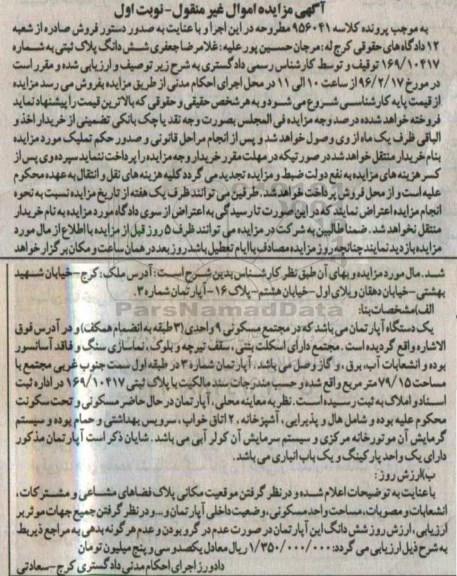 آگهی مزایده اموال غیر منقول-نوبت اول
به موجب پرونده کلاسه ۹۵۶۰۴۱ مطروحه در این اجرا و با عنایت به صدور دستور فروش صادره از شعبه
۱۲ دادگاه های حقوقی کرج له: مرجان حسین پور علیه: غلامرضا جعفری شش دانگ پلاک ثبتی به شماره
۱۶۹/۱۰۴۱۷ توقیف و توسط کارشناس رسمی دادگستری به شرح زیر توصیف و ارزیابی شده و مقرر است
در مورخ ۹۶/۲/۱۷ از ساعت ۱۰ الی ۱۱ در محل اجرای احکام مدنی از طریق مزایده بفروش می رسد مزایده
از قیمت پایه کارشناسی شروع می شود و به هر شخص حقیقی و حقوقی که بالاترین قیمت را پیشنهاد نماید
فروخته خواهد شد ده درصد وجه مزایده فی المجلس بصورت وجه نقد یا چک بانکی تضمینی از خریدار اخذ و
الباقی ظرف یک ماه از وی وصول خواهد شد و پس از انجام مراحل قانونی و صدور حکم تملیک مورد مزایده
بنام خریدار منتقل خواهد شد در صورتیکه در مهلت مقرر خریدار وجه مزایده را پرداخت ننماید سپرده وی پس از
کسر هزینه های مزایده به نفع دولت ضبط و مزایده تجدید می گردد کلیه هزینه های نقل و انتقال به عهده محکوم
علیه است و از محل فروش پرداخت خواهد شد. طرفین می توانند ظرف یک هفته از تاریخ مزایده نسبت به نحوه
انجام مزایده اعتراض نمایند که در این صورت تا رسیدگی به اعتراض از سوی دادگاه مورد مزایده به نام خریدار
منتقل نخواهد شد. ضمنا طالبین به شرکت در مزایده می توانند ظرف ۵ روز قبل از مزایده با اطلاع از مال مورد
مزایده بازدید نمایند چنانچه روز مزایده مصادف با ایام تعطیل باشد روز بعد در همان ساعت و مکان برگزار خواهد
شد. مال مورد مزایده و بهای آن طبق نظر کارشناس بدین شرح است: آدرس ملک: کرج-خیابان شهید
بهشتی-خیابان دهقان ویلای اول-خیابان هشتم-پلاک ۱۶-آپارتمان شماره ۳.
الف) مشخصات بنا:
یک دستگاه آپارتمان می باشد که در مجتمع مسکونی ۹ واحدی (۳ طبقه به انضمام همکف) و در آدرس فوق
الاشاره واقع گردیده است. مجتمع دارای اسکلت بتنی، سقف تیرچه و بلوک، نماسازی سنگ و فاقد آسانسور
بوده و انشعابات آب، برق، و گاز وصل می باشد. آپارتمان شماره ۳ در طبقه اول سمت جنوب غربی مجتمع با
مساحت ۷۹/۱۵ متر مربع واقع شده و حسب مندرجات سند مالکیت با پلاک ثبتی ۱۶۹/۱۰۴۱۷ در اداره ثبت
اسناد و املاک به ثبت رسیده است. نظر به معاینه محلی، آپارتمان در حال حاضر مسکونی و تحت سکونت
محکوم علیه بوده و شامل هال و پذیرایی، آشپزخانه، ۲ اتاق خواب، سرویس بهداشتی و حمام بوده و سیستم
گرمایش آن موتورخانه مرکزی و سیستم سرمایش آن کولر آبی می باشد. شایان ذکر است آپارتمان مذکور
دارای یک واحد پارکینگ و یک باب انباری می باشد.
ب) ارزش روز:
با عنایت به توضیحات اعلام شده و در نظر گرفتن موقعیت مکانی پلاک فضاهای مشاعی و مشترکات،
انشعابات و مصوبات، مساحت واحد مسکونی، وضعیت داخلی آپارتمان و... و در نظر گرفتن جمیع جهات موثر بر
ارزیابی، ارزش روز شش دانگ این آپارتمان در صورت عدم در گرو بودن و عدم هرگونه بدهی به مراجع ذیربط به
به شرح ذیل ارزیابی می گردد: ۱/۳۵۰/۰۰۰/۰۰۰ ریال معادل یکصد و سی و پنج میلیون تومان
دادورز اجرای احکام مدنی دادگستری کرج-سعادتی
ParsNamadData